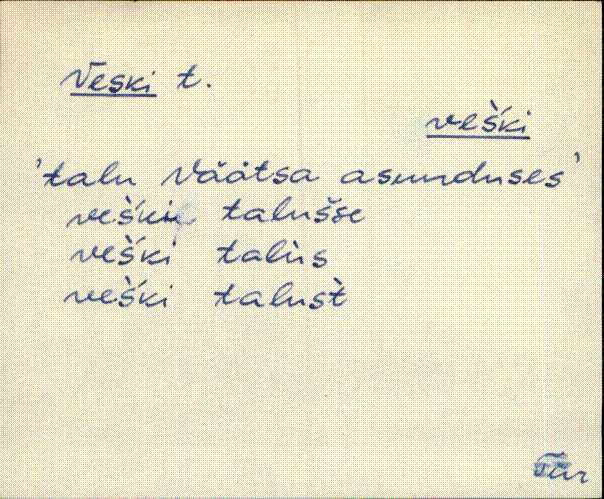 Veski t.
veš́ki
'talu Väätsa asunduses'
veš́ki talušse
veš́ki talùs
veš́ki talust̀
Tür